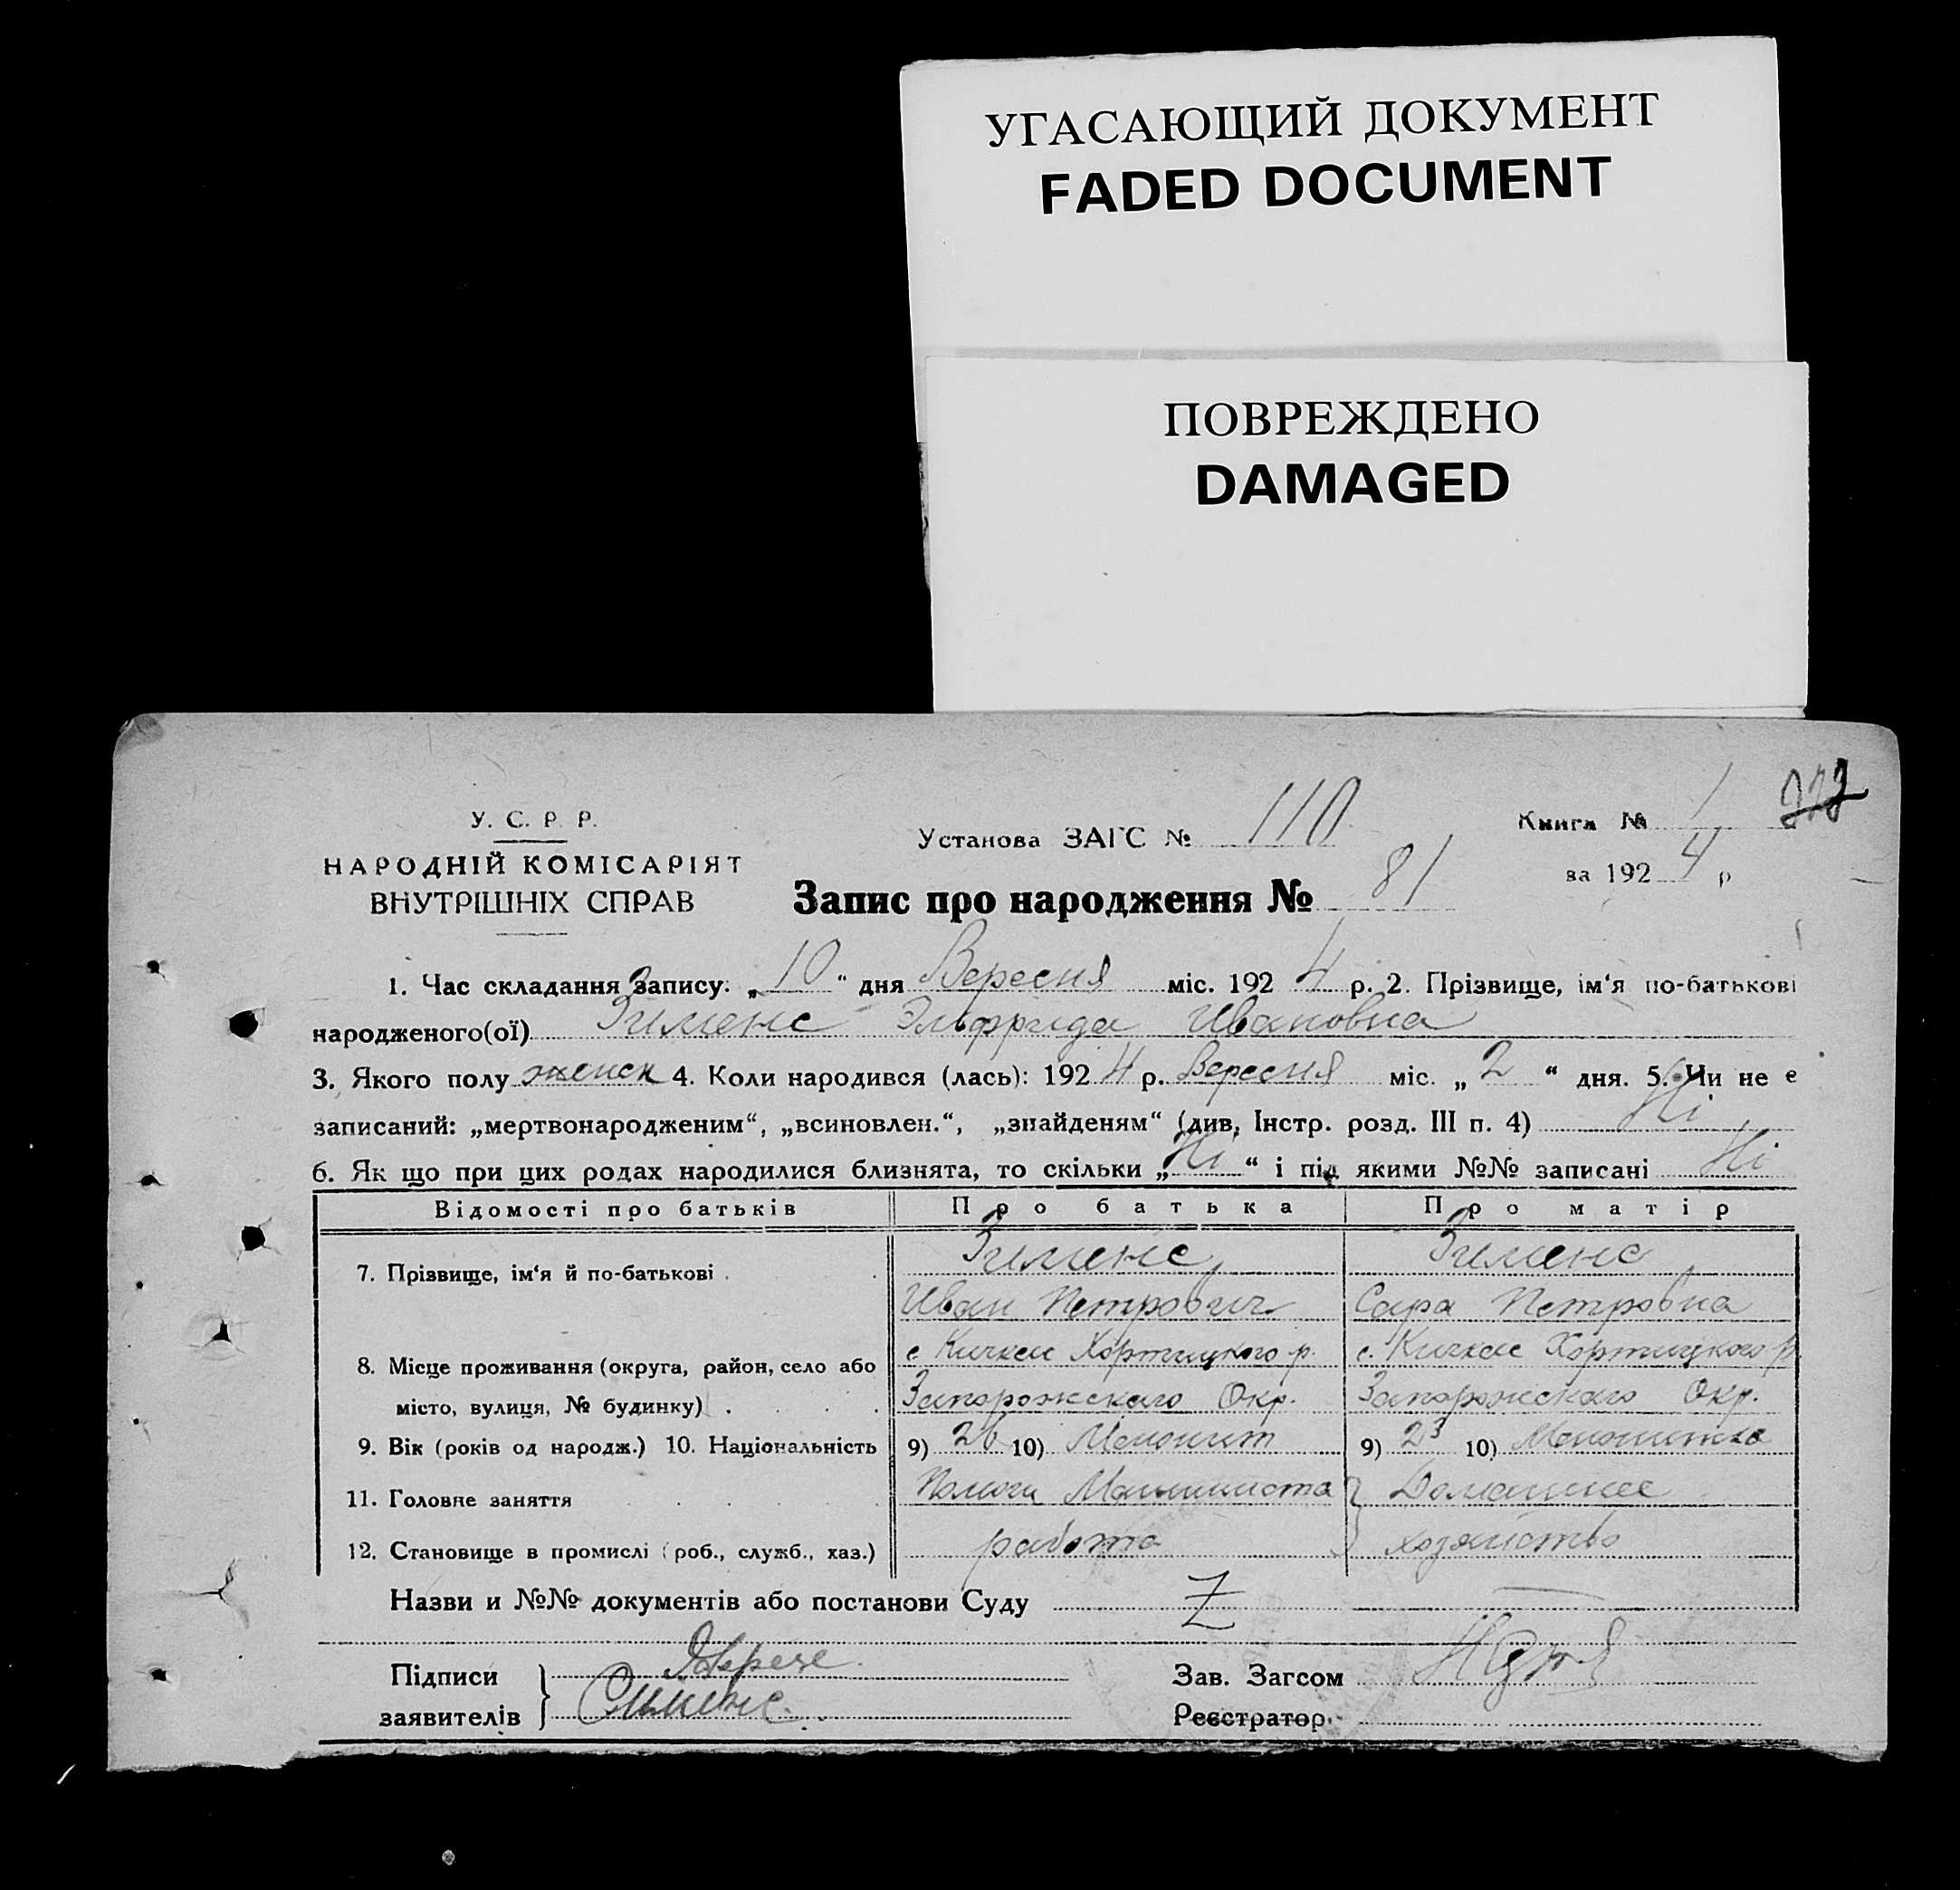 УГАСАЮЩИЙ ДОКУМЕНТ
FADED DOCUMENT
ПОВРЕЖДЕНО
DAMAGED
У. С. Р. Р.
НАРОДНІЙ КОМІСАРІЯТ
ВНУТРІШНІХ СПРАВ
Установа ЗАГС № 110
Книга № 1
за 1924 р
Запис про народження № 81
1. Час складання запису: „10“ дня Вересня міс. 1924 р. 2. Прізвище, ім‘я по-батькові
народженого(ої) Зименс Эльфрида Ивановна
3. Якого полу женск 4. Коли народився (лась): 1924 р. Вересня міс. „2“ дня. 5. Чи не є
записаний: „мертвонародженим“, „всиновлен.“, „знайденям“ (див. Інстр. розд. III п. 4) Ні
6. Як що при цих родах народилися близнята, то скільки „Ні“ і під якими №№ записані Ні
Відомості про батьків Про батька Про матір
7. Прізвище, ім‘я й по-батькові Зименс Зименс
Иван Петрович Сара Петровна
8. Місце проживання (округа, район, село або с Кичкас Хортицкого р. с. Кичкас Хортицкого р.
місто, вулиця, № будинку) Запорожскаго Окр. Запорожскаго Окр.
9. Вік (років од народж.) 10. Національність 9) 26 10) Менонит 9) 23 10) Менонитка
11. Головне заняття Машиниста Домашнее
12. Становище в промислі (роб., служб., хаз.) работа хозяйство
Назви и №№ документів або постанови Суду Z
Підписи
заявителів Сименс
Зав. Загсом
Реєстратор